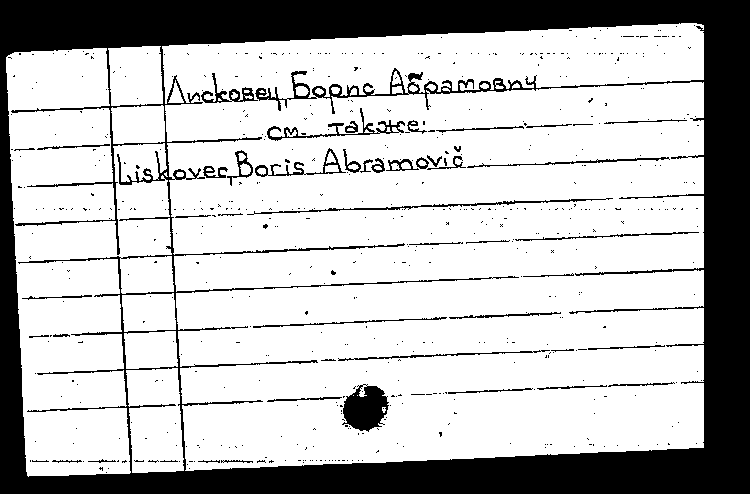 Лисковец, Борис Абрамович
см. также:
Liskovec, Boris Abramovič